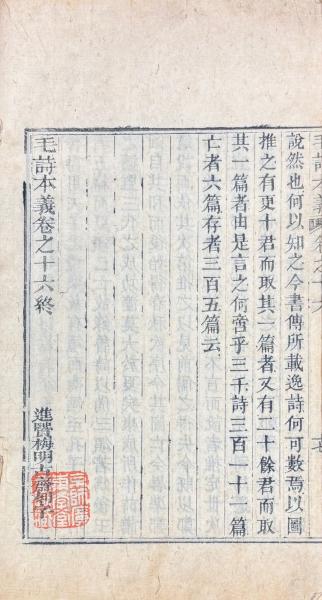 說然也何以知之今書傳所載逸詩何可數焉以圖
推之有更十君而取其一篇者又有二十餘君而取
其一篇者由是言之何啻乎三千詩三百一十一篇
亡者六篇存者三百五篇云
毛詩本義卷之十六終
進賢梅明